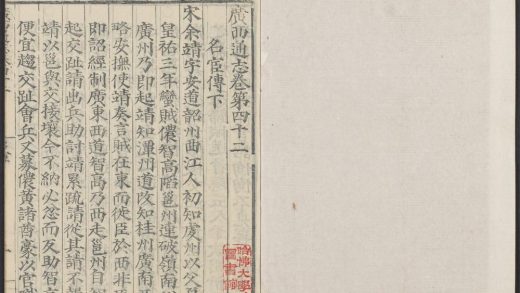 廣西通志卷第四十二
名宦傳下
宋余靖字安道韶州曲江人初知虔州以父
皇祐三年蠻賊儂智高陷邕州連破嶺南
廣州乃即起靖知潭州道改知桂州廣南
路安撫使靖奏言賊在東而徙臣於西非
即詔經制廣東西道智高乃西走邕州自
起交趾請出兵助討靖累疏請從其請不
靖以邕與交接壤今不納必忿而反助智
便宜趨交趾會兵又募儂黃諸酋豪以官
哈佛大學
圖書館